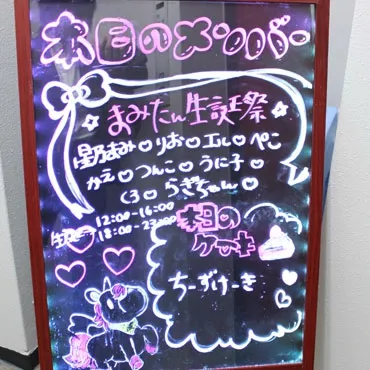 本日のメンバー
☆まみたん生誕祭☆
星野まみ♡りお♡エル♡ぺこ
かえ♡つんこ♡うに子♡
くろ♡らきちゃん♡
12:00-16:00
18:00-23:00
本日の
ケーキ
ちーずけーき